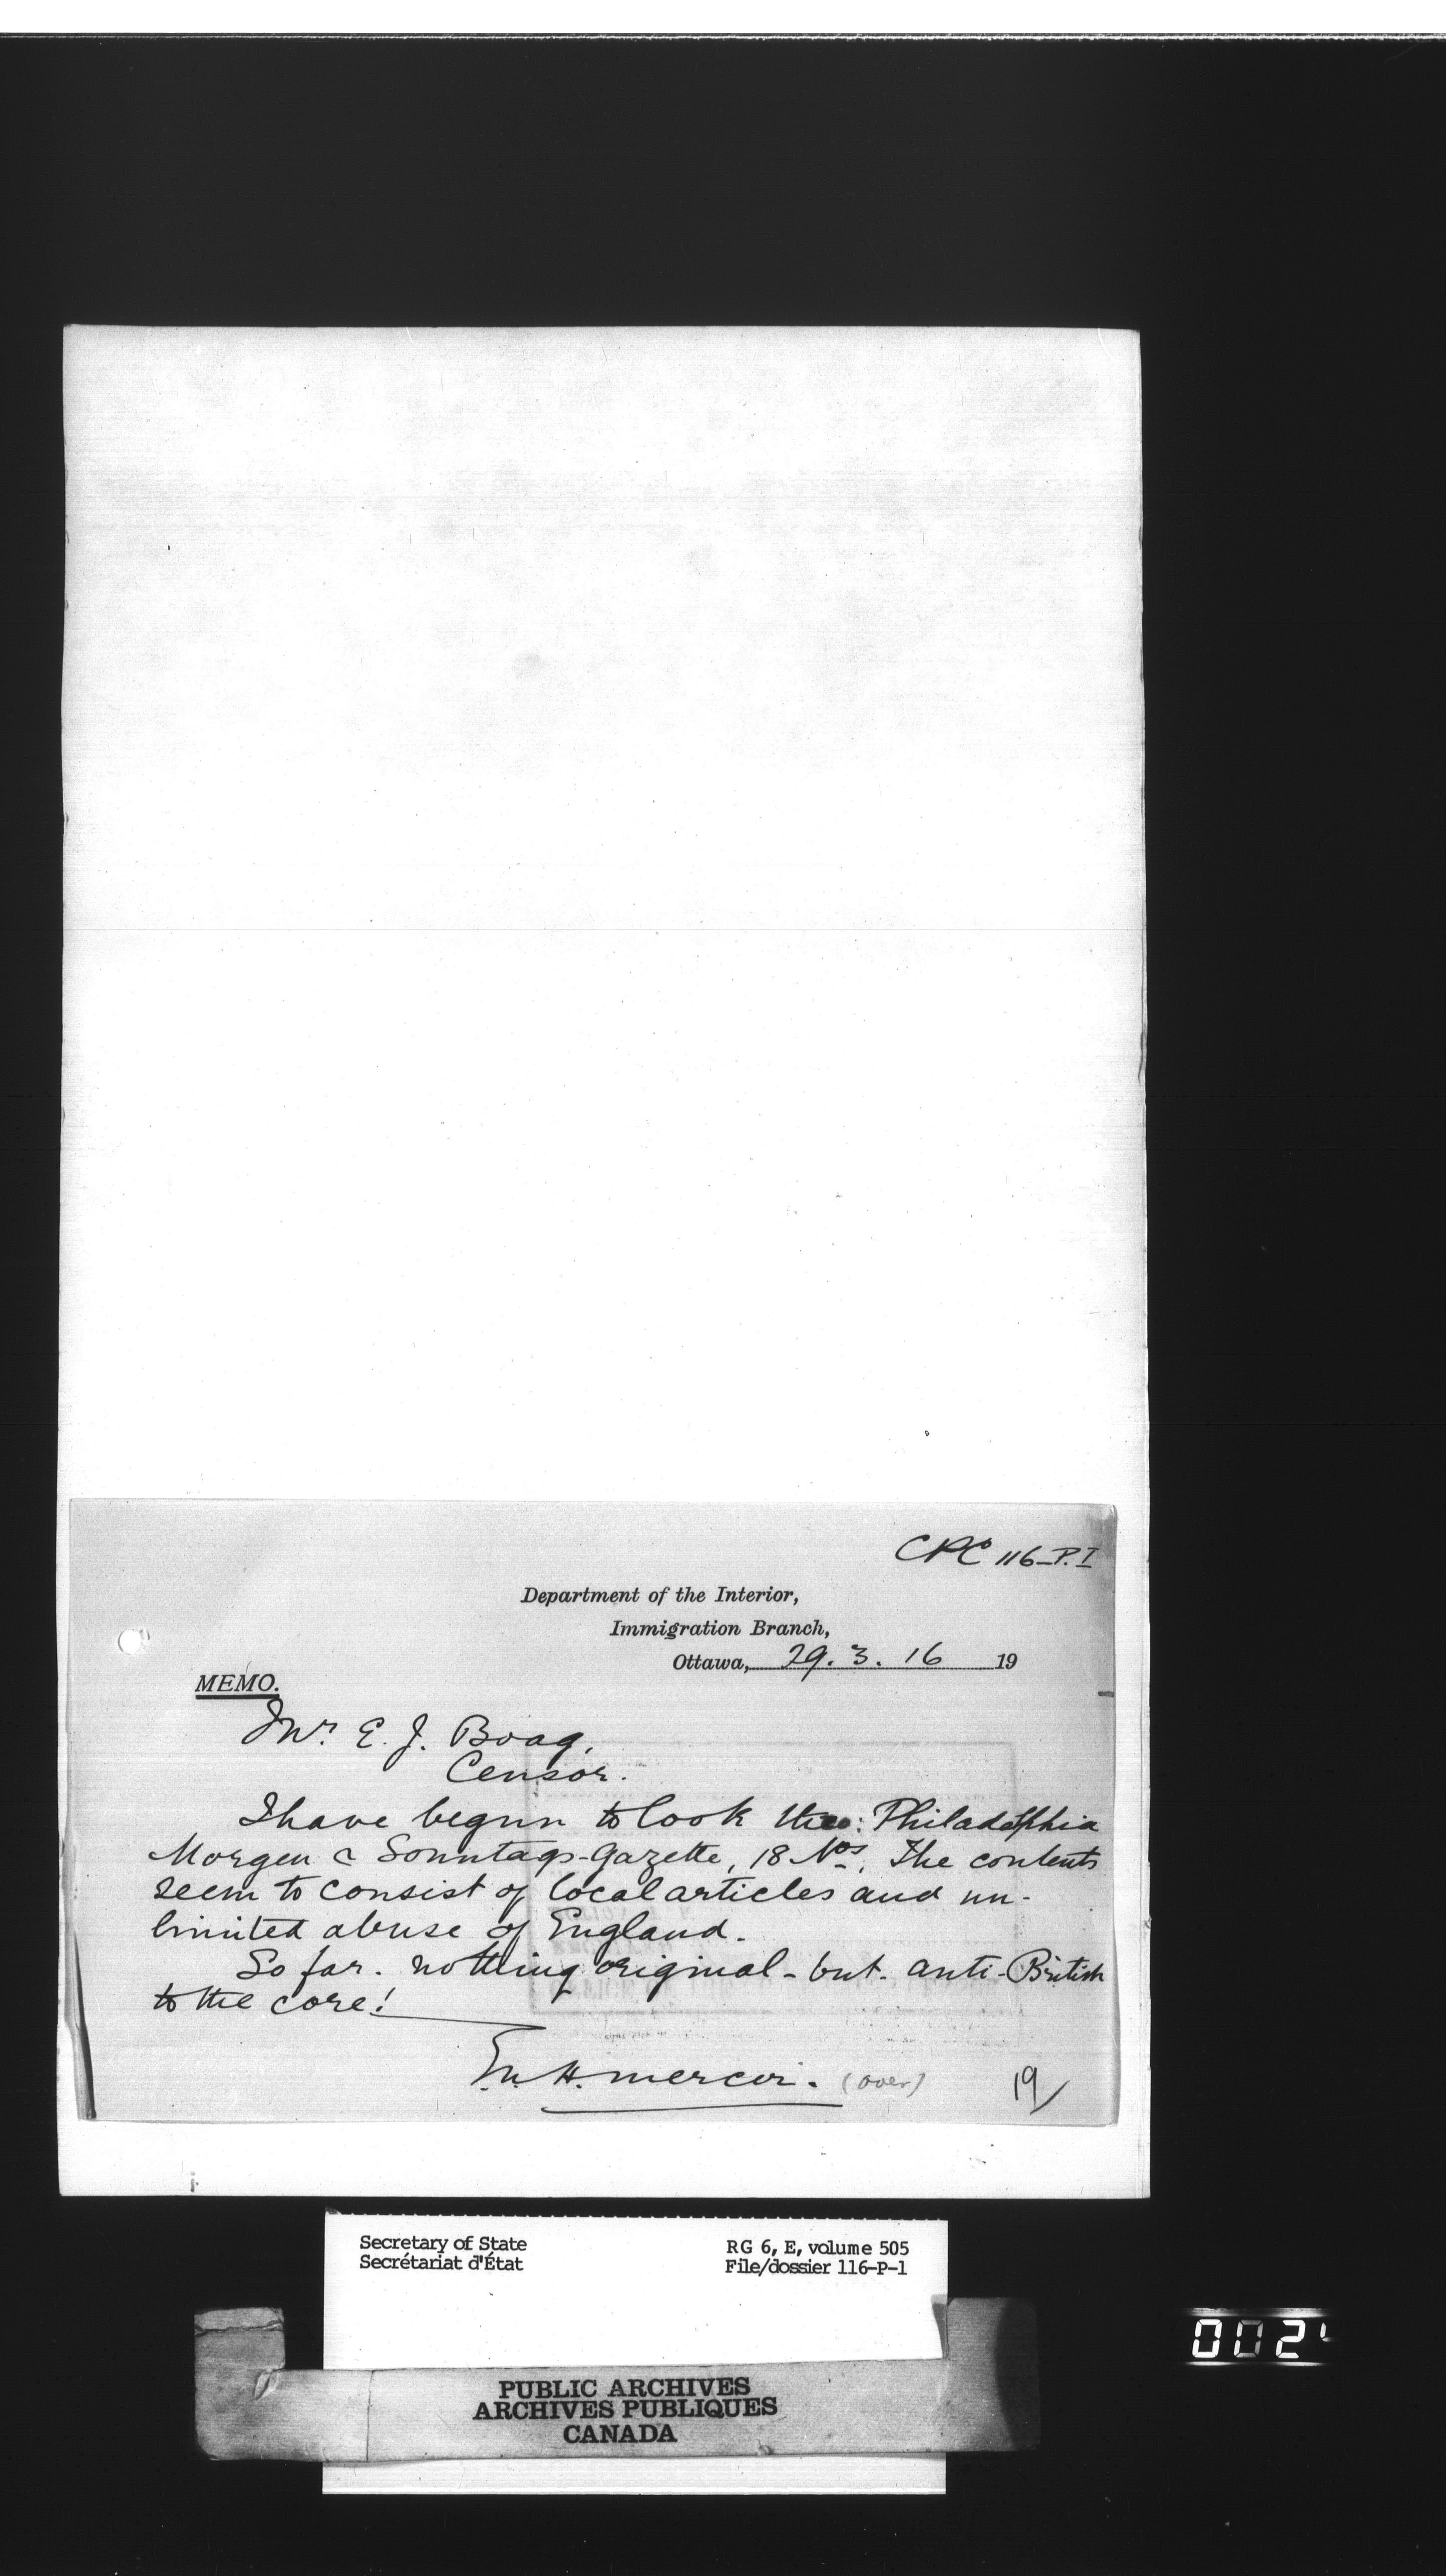 CPC 116-P.I
Department of the Interior,
Immigration Branch,
Ottawa, 29. 3. 16 19
MEMO.
Mr. E. J. Boag,
Censor.
I have begun to look thro: Philadelphia
Morgen & Sonntags-Gazette, 18 Nos. The contents
seem to consist of local articles and un-
limited abuse of England.
So far. nothing original - but. anti-British
to the core!
H. Mercer. (over) 19/
Secretary of State RG 6, E, volume 505
Secrétariat d'État File/dossier 116-P-1
PUBLIC ARCHIVES
ARCHIVES PUBLIQUES
CANADA
002